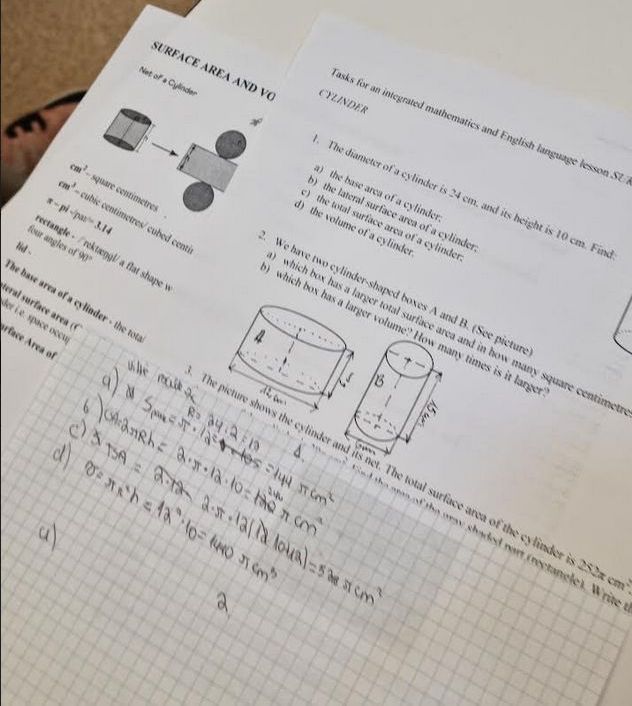 SURFACE AREA AND VO
Net of a Cylinder
cm² – square centimetres
cm³ – cubic centimetres/ cubed centi
π – pi -/paɪ/= 3,14
rectangle - /ˈrektæŋɡl/ a flat shape w
four angles of 90°
lid -
The base area of a cylinder - the total
lateral surface area (
der i.e. space occup
urface Area of
Tasks for an integrated mathematics and English language lesson SUR
CYLINDER
1. The diameter of a cylinder is 24 cm, and its height is 10 cm. Find:
a) the base area of a cylinder;
b) the lateral surface area of a cylinder;
c) the total surface area of a cylinder;
d) the volume of a cylinder.
2. We have two cylinder-shaped boxes A and B. (See picture)
a) which box has a larger total surface area and in how many square centimetres
b) which box has a larger volume? How many times is it larger?
A
B
12 cm
3. The picture shows the cylinder and its net. The total surface area of the cylinder is 252π cm²
shaded part (rectangle). Write th
R = 24:2=12
a)
= 144 π cm²
b)
2πRh = 2·π·12·10=
240
π cm²
c)
TSA =
2·π·12(
π cm²
d)
π cm³
a)
2